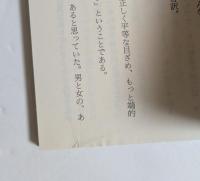 訳。
正しく平等な目ざめ、もっと端的
」ということである。
あると思っていた。男と女の、あ